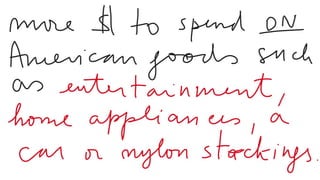 more $ to spend ON
American goods such
as entertainment,
home appliances, a
car or nylon stockings.